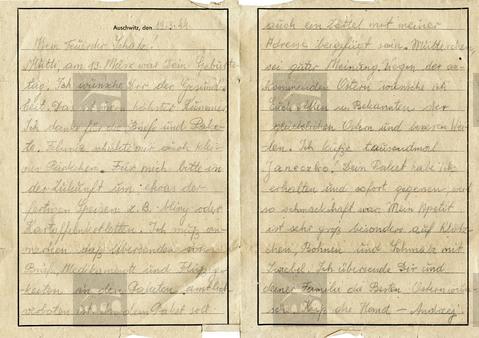 Auschwitz, den 19.3.44
Mein teurer Schatz!
Mutti, am 13. März war Dein Geburts-
tag. Ich wünsche Dir der Gesund-
heit. Das ist
Ich danke für die Briefe und Pake-
te.
Päckchen. Für mich bitte in
der Zukunft um etwas der
fertigen Speisen z.B. oder
Kartoffelkotletten. Ich muß an-
merken daß Übersenden von
Briefe, Medikamente und Flüssig-
keiten in den Paketen amtlich
verboten ist. In dem Paket soll
auch ein Zettel mit meiner
Adresse beigefügt sein. Mütterchen
sei guter Meinung. Wegen der an-
kommenden Ostern wünsche ich
Euch Allen u. Bekannten der
glücklichen Ostern und besseren Zei-
ten. Ich küße tausendmal
Janeczko. Dein Paket habe ich
erhalten und sofort gegessen, weil
so schmackhaft war. Mein Apetit
ist sehr groß besonders auf
Bohnen und Schmalz mit
Ich übersende Dir und
deiner Familie die Besten Osternwün-
sche. die Hand – Andrzej